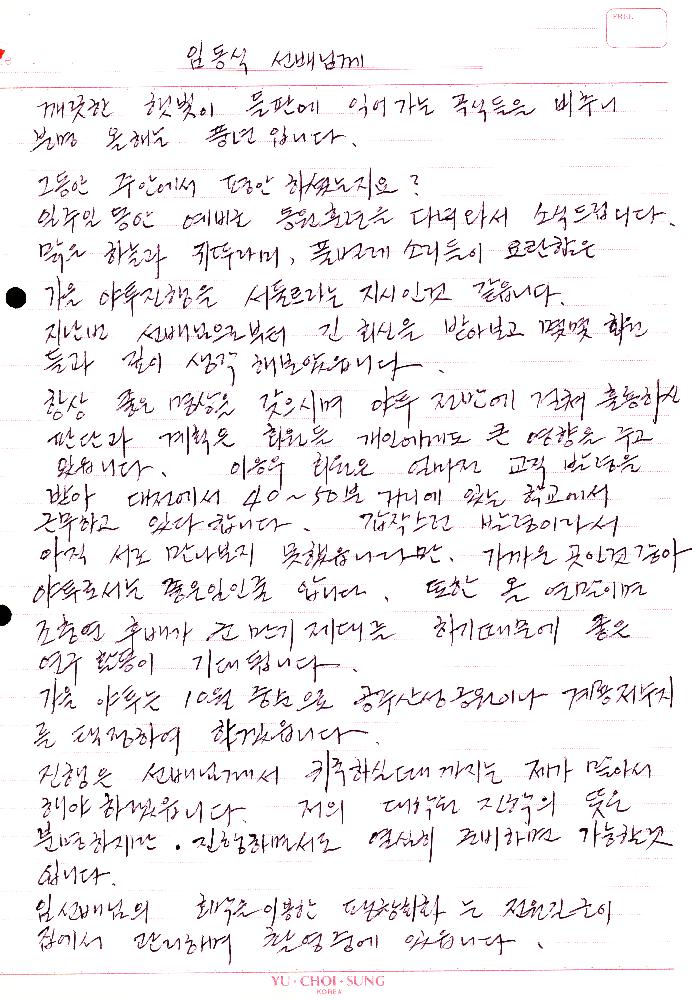 FREE
임동식 선배님께
깨끗한 햇빛이 들판에 익어가는 곡식들을 비추니
분명 올해는 풍년입니다.
그동안 주안에서 평안 하셨는지요?
일주일 동안 예비군 동원훈련을 다녀와서 소식드립니다.
맑은 하늘과 귀뚜라미, 풀벌레 소리들이 요란함은
가을 야투진행을 서둘르라는 지시인것 같습니다.
지난번 선배님으로부터 긴 회신을 받아보고 몇몇 회원
들과 깊이 생각 해보았읍니다.
항상 좋은 명상을 갖으시며 야투 전반에 걸쳐 훌륭하신
판단과 계획은 회원들 개인에게도 큰 영향을 주고
있읍니다. 이응우 회원은 얼마전 교직 발령을
받아 대전에서 40~50분 거리에 있는 학교에서
근무하고 있다 합니다. 갑작스런 발령이라서
아직 서로 만나보지 못했읍니다만, 가까운 곳인것 같아
야투로서는 좋은일인줄 압니다. 또한 올 연말이면
조충연 후배가 군 만기 제대를 하기때문에 좋은
연구 활동이 기대 됩니다.
가을 야투는 10월 중순으로 공주산성공원이나 계룡저수지
를 택정하여 하겠읍니다.
진행은 선배님께서 귀국하실때 까지는 제가 맡아서
해야 하겠읍니다. 저의 대학원 진학의 뜻은
분명하지만, 진행하면서도 열심히 준비하면 가능할것
입니다.
임선배님의 회색을이용한 은 전원길군이
집에서 관리하며 촬영중에 있읍니다.
YU·CHOI·SUNG
KOREA